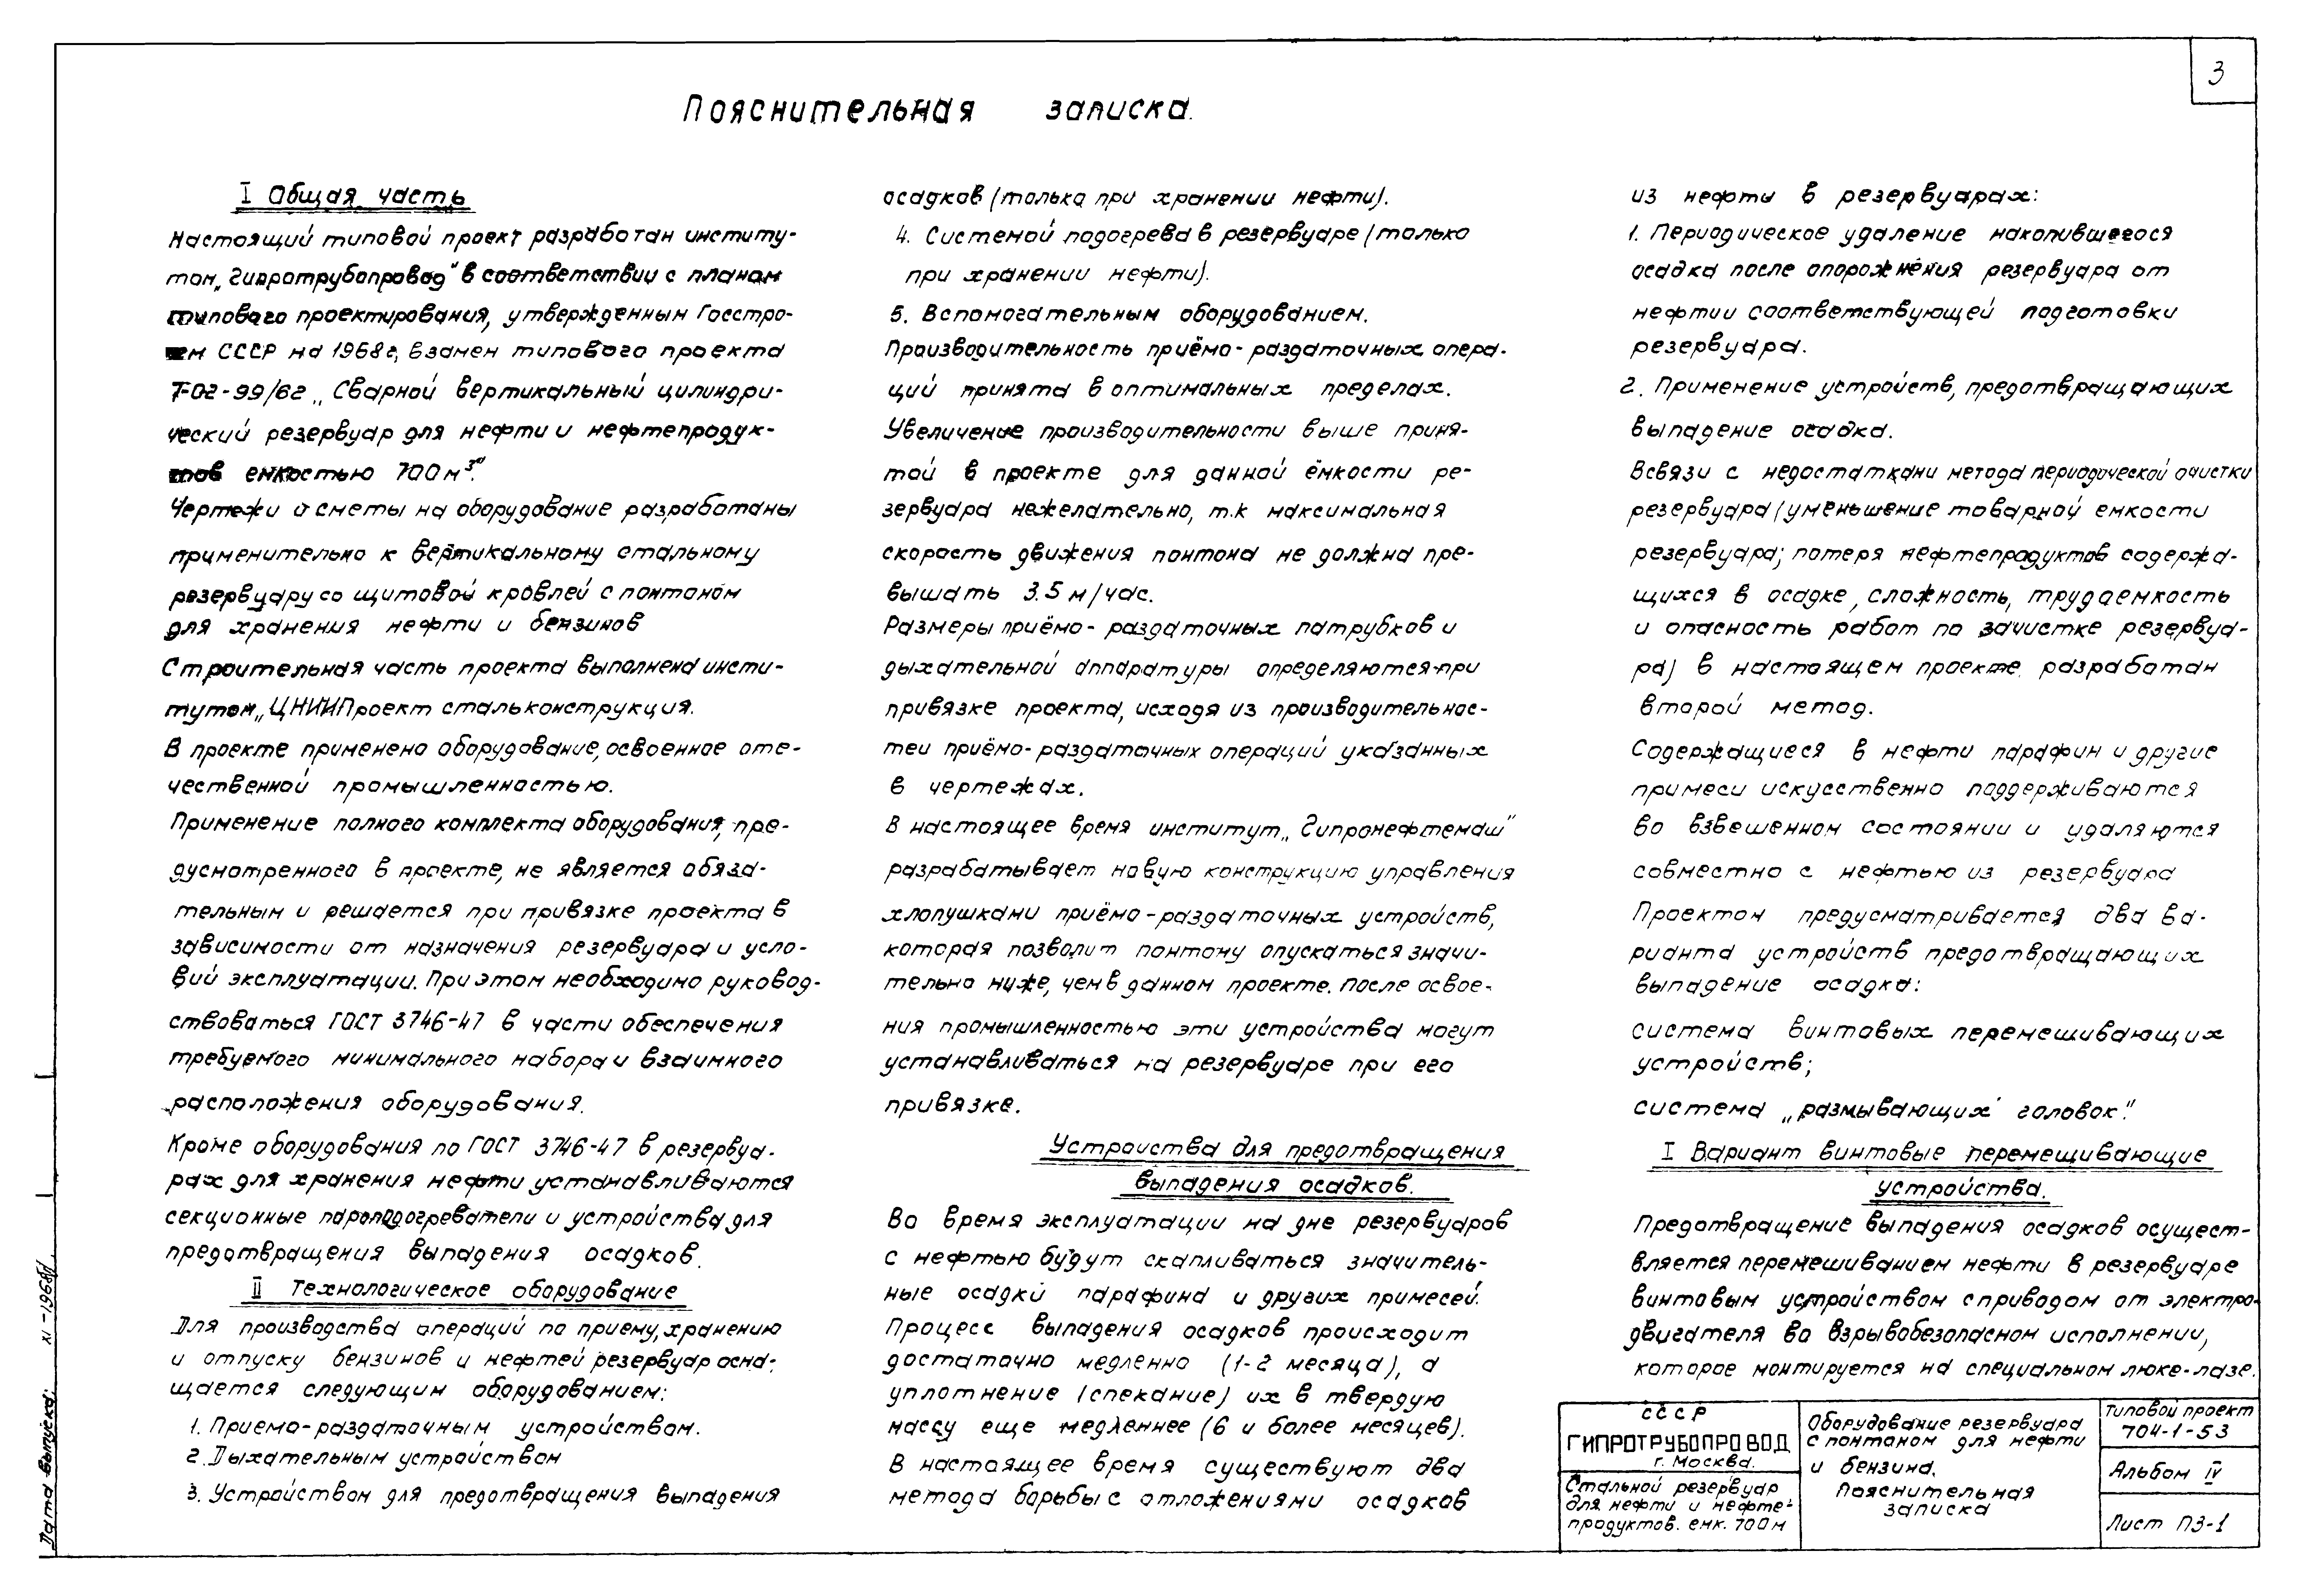 3
Пояснительная записка.
I Общая часть
Настоящий типовой проект разработан институ-
том „Гипротрубопровод" в соответствии с планом
типового проектирования, утвержденным Госстро-
ем СССР на 1968г, взамен типового проекта
7-02-99/62 „Сварной вертикальный цилиндри-
ческий резервуар для нефти и нефтепродук-
тов емкостью 700 м³".
Чертежи и сметы на оборудование разработаны
применительно к вертикальному стальному
резервуару со щитовой кровлей с понтоном
для хранения нефти и бензинов
Строительная часть проекта выполнена инсти-
тутом „ЦНИИПроект стальконструкция.
В проекте применено оборудование, освоенное оте-
чественной промышленностью.
Применение полного комплекта оборудования, пре-
дусмотренного в проекте, не является обяза-
тельным и решается при привязке проекта в
зависимости от назначения резервуара и усло-
вий эксплуатации. При этом необходимо руковод-
ствоваться ГОСТ 3746-47 в части обеспечения
требуемого минимального набора и взаимного
расположения оборудования.
Кроме оборудования по ГОСТ 3746-47 в резервуа-
рах для хранения нефти устанавливаются
секционные пароподогреватели и устройства для
предотвращения выпадения осадков.
II Технологическое оборудование
Для производства операций по приему, хранению
и отпуску бензинов и нефтей резервуар осна-
щается следующим оборудованием:
1. Приемо-раздаточным устройством.
2. Дыхательным устройством
3. Устройством для предотвращения выпадения
осадков (только при хранении нефти).
4. Системой подогрева в резервуаре (только
при хранении нефти).
5. Вспомогательным оборудованием.
Производительность приёмо-раздаточных опера-
ций принята в оптимальных пределах.
Увеличение производительности выше приня-
той в проекте для данной ёмкости ре-
зервуара нежелательно, т.к максимальная
скорость движения понтона не должна пре-
вышать 3.5 м/час.
Размеры приёмо-раздаточных патрубков и
дыхательной аппаратуры определяются при
привязке проекта, исходя из производительнос-
теи приёмо-раздаточных операций указанных
в чертежах.
В настоящее время институт „Гипронефтемаш"
разрабатывает новую конструкцию управления
хлопушками приёмо-раздаточных устройств,
которая позволит понтону опускаться значи-
тельно ниже, чем в данном проекте. После освое-
ния промышленностью эти устройства могут
устанавливаться на резервуаре при его
привязке.
Устроиства для предотвращения
выпадения осадков.
Во время эксплуатации на дне резервуаров
с нефтью будут скапливаться значитель-
ные осадки парафина и других примесей.
Процесс выпадения осадков происходит
достаточно медленно (1-2 месяца), а
уплотнение (спекание) их в твердую
массу еще медленнее (6 и более месяцев).
В настоящее время существуют два
метода борьбы с отложениями осадков
из нефти в резервуарах:
1. Периодическое удаление накопившегося
осадка после опорожнения резервуара от
нефти и соответствующей подготовки
резервуара.
2. Применение устройств, предотвращающих
выпадение осадка.
Всвязи с недостатками метода периодической очистки
резервуара (уменьшение товарной емкости
резервуара; потеря нефтепродуктов содержа-
щихся в осадке, сложность, трудоемкость
и опасность работ по зачистке резервуа-
ра) в настоящем проекте разработан
второй метод.
Содержащиеся в нефти парафин и другие
примеси искусственно поддерживаются
во взвешенном состоянии и удаляются
совместно с нефтью из резервуара
Проектом предусматривается два ва-
рианта устройств предотвращающих
выпадение осадка:
система винтовых перемешивающих
устройств;
система „размывающих головок".
I Вариант винтовые перемещивающие
устройства.
Предотвращение выпадения осадков осущест-
вляется перемешиванием нефти в резервуаре
винтовым устройством с приводом от электро-
двигателя во взрывобезопасном исполнении,
которое монтируется на специальном люке-лазе.
СССР
ГИПРОТРУБОПРОВОД
г. Москва.
Стальной резервуар
для нефти и нефте-
продуктов. емк. 700 м
Оборудование резервуара
с понтоном для нефти
и бензина.
Пояснительная
записка
Типовой проект
704-1-53
Альбом IV
Лист ПЗ-1
Дата выпуска: XI-1968г